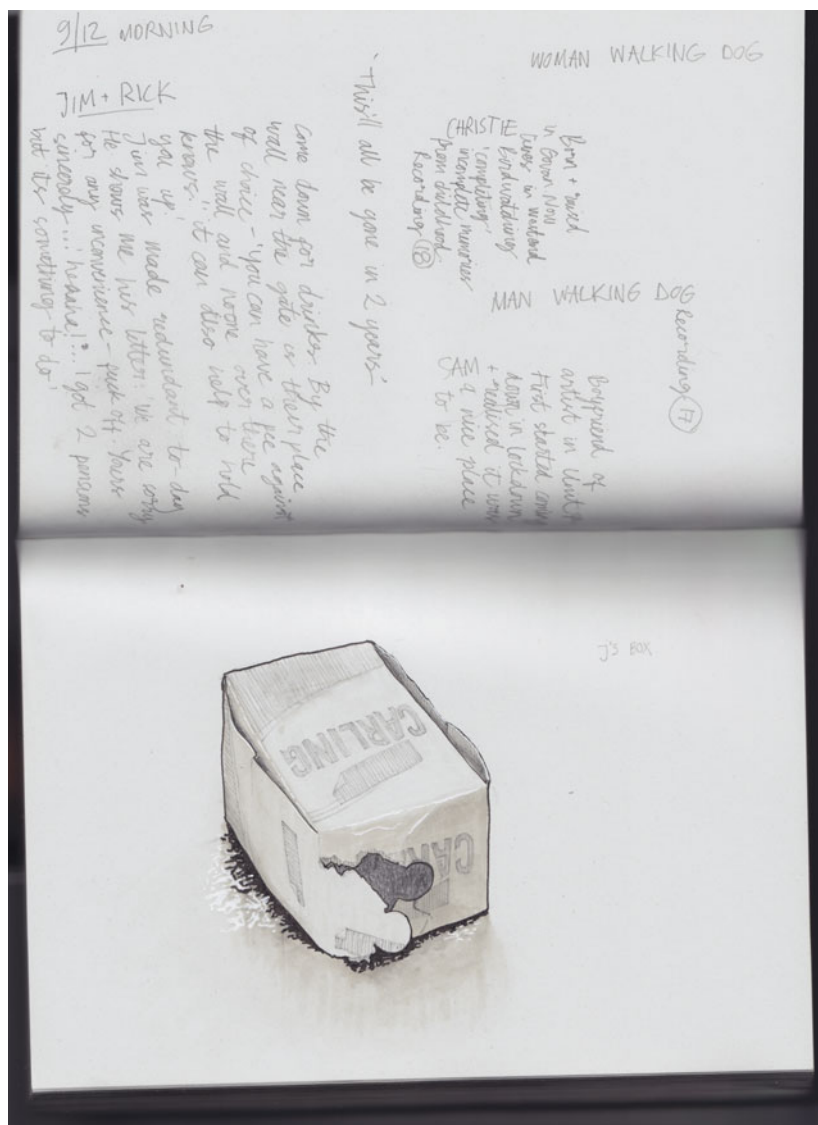 9/12 MORNING
JIM + RICK
'This'll all be gone in 2 years'
Come down for drinks. By the
wall near the gate is their place
of choice - 'you can have a pee against
the wall and noone over there
knows.' 'it can also help to hold
you up'
Jim was made redundant to-day
He shows me his letter: 'we are sorry
for any inconvenience - fuck off. Yours
sincerely...' hahaha!'... 'I got 2 pensions
but its something to do'
WOMAN WALKING DOG
CHRISTIE
Born + raised
in Now
lives in
Birdwatching
'completing'
incomplete memories
from childhood
Recording 18
MAN WALKING DOG
Recording 17
CAM
Boyfriend of
artist in Unit
First started coming
down in lockdown
+ realised it was
a nice place
to be.
J'S BOX
CARLING
CARLING